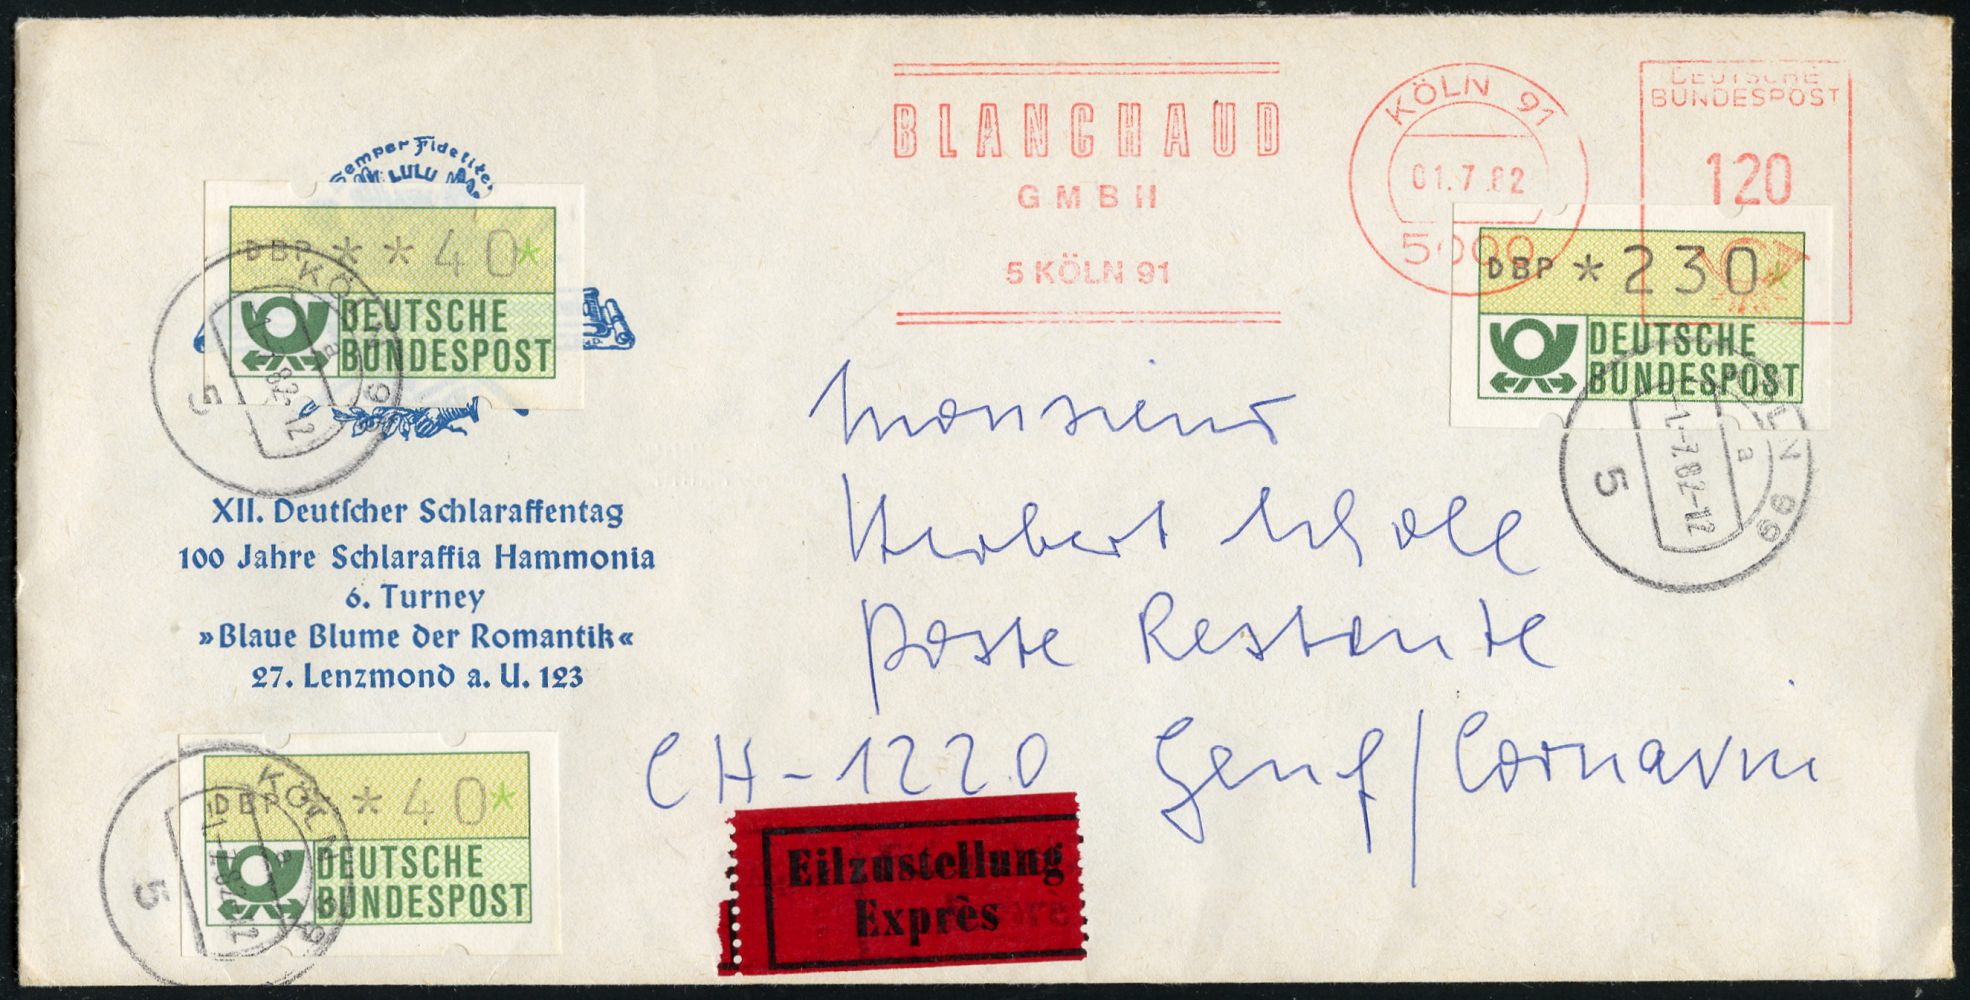 BLANCHAUD
GMBH
5 KÖLN 91
KÖLN 91
01.7.82
5000
DEUTSCHE
BUNDESPOST
120
Semper Fidelites
LULU
DBP **40*
DEUTSCHE
BUNDESPOST
DBP *230*
DEUTSCHE
BUNDESPOST
KÖLN
5
-1.-7.82-12
KÖLN 89
a
5
XII. Deutscher Schlaraffentag
100 Jahre Schlaraffia Hammonia
6. Turney
»Blaue Blume der Romantik«
27. Lenzmond a. U. 123
Monsieur
Herbert Scholl
Poste Restante
CH-1220 Genf/Cornavin
DBP *40*
DEUTSCHE
BUNDESPOST
KÖLN
5
Eilzustellung
Exprès